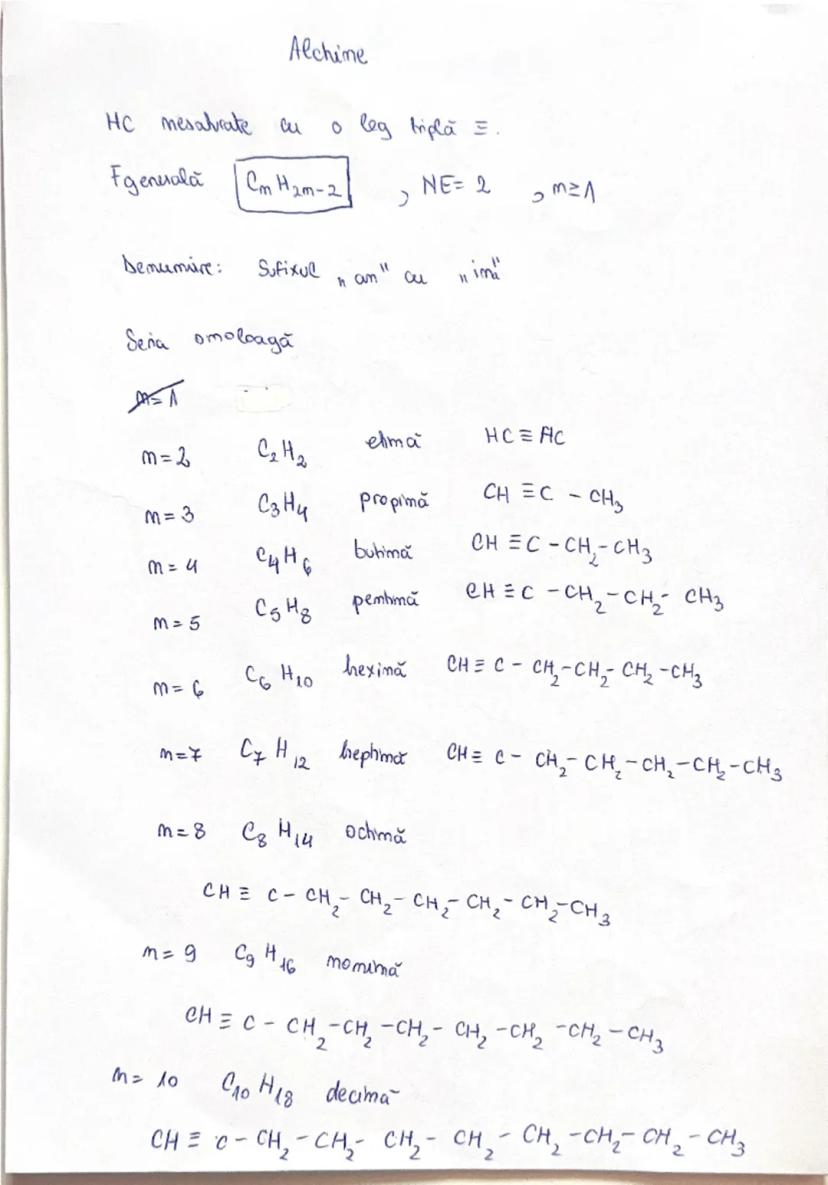 Alchine
HC nesaturate cu o leg triplă ≡.
Fgenerală CnH2n-2 , NE= 2 , n≥1
Denumire: Sufixul „an" cu „ină"
Seria omoloagă
n=1
n=2 C2H2 etină HC≡HC
n=3 C3H4 propină CH≡C-CH3
n=4 C4H6 butină CH≡C-CH2-CH3
n=5 C5H8 pentină CH≡C-CH2-CH2-CH3
n=6 C6H10 hexină CH≡C-CH2-CH2-CH2-CH3
n=7 C7H12 heptină CH≡C-CH2-CH2-CH2-CH2-CH3
n=8 C8H14 octină
CH≡C-CH2-CH2-CH2-CH2-CH2-CH3
n=9 C9H16 nonină
CH≡C-CH2-CH2-CH2-CH2-CH2-CH2-CH3
n=10 C10H18 decină
CH≡C-CH2-CH2-CH2-CH2-CH2-CH2-CH2-CH3